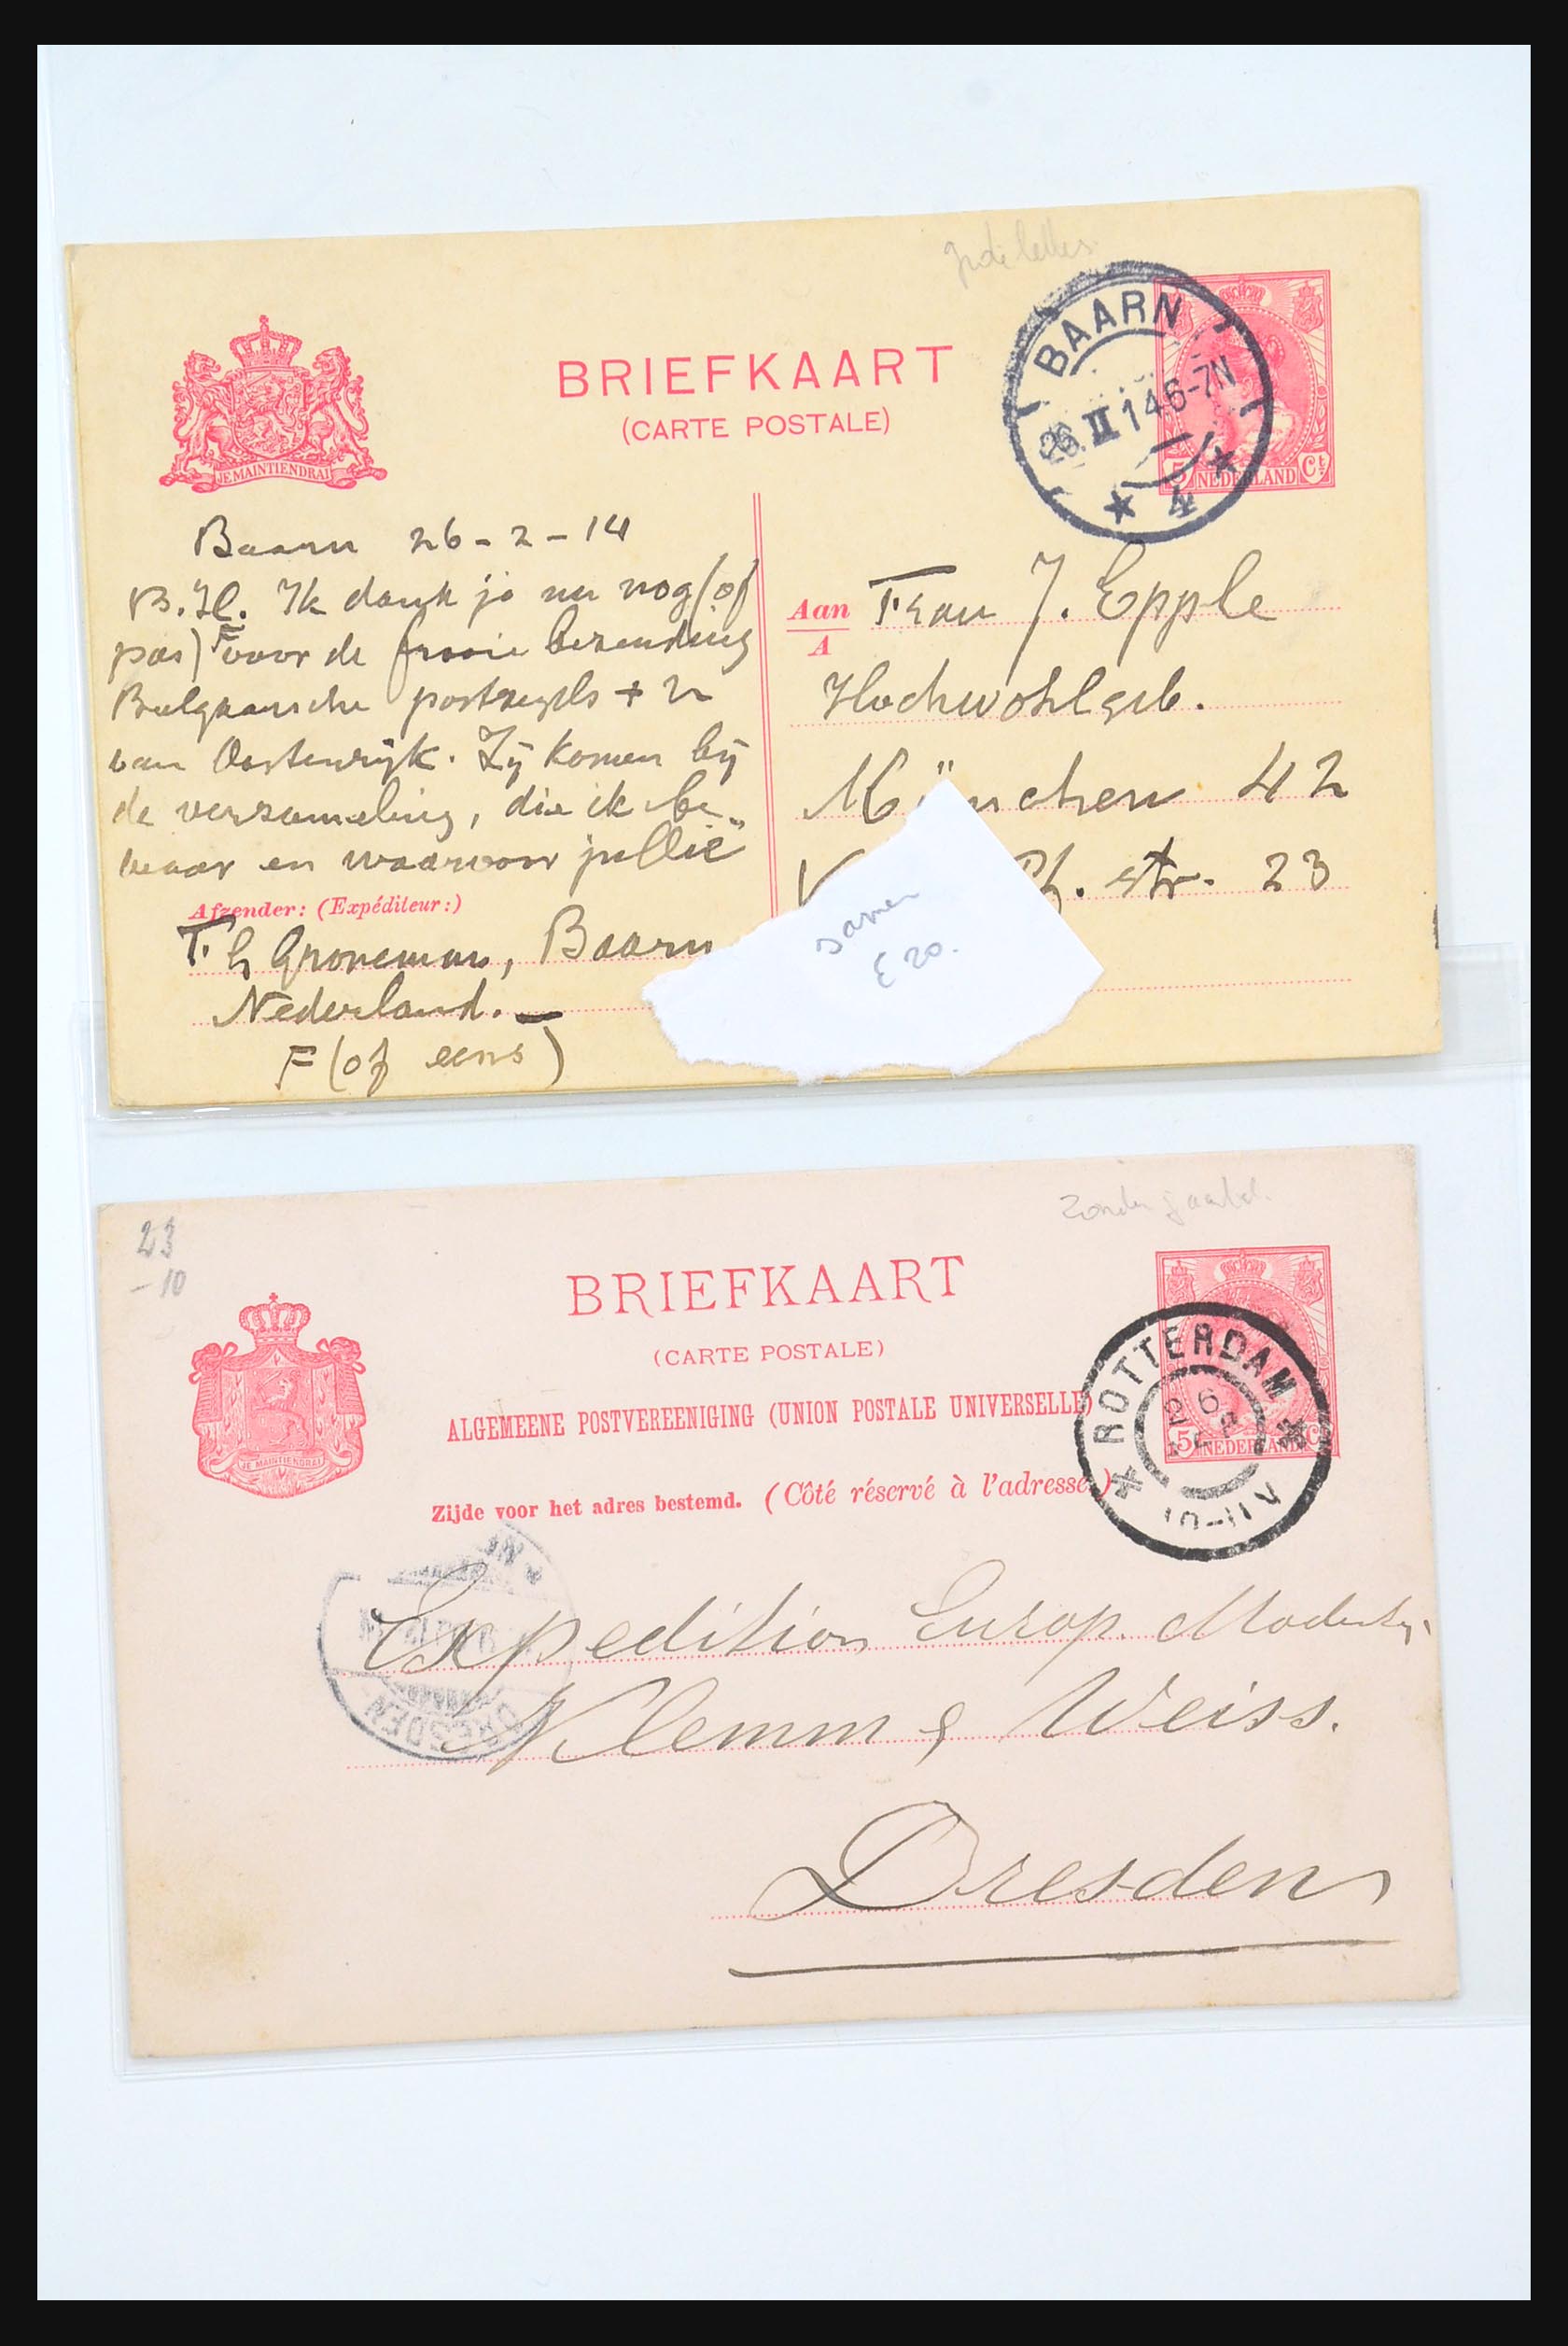 BRIEFKAART
(CARTE POSTALE)
JE MAINTIENDRAI
BAARN
26. II 14 6-7N
★ 4 ★
5 NEDERLAND Ct
Baarn 26-2-14
B.H. Ik dank je nu nog (of
pas) F voor de fraaie bezending
Belgaansche postzegels + 2
van Oostenrijk. Zij komen bij
de verzameling, die ik be„
waar en waarvoor jullie
Afzender: (Expéditeur:)
Groneman, Baarn
Nederland.
F (of eens)
Aan
A
Frau J. Epple
Hochwohlgeb.
München 42
str. 23
samen
€ 20.
23
-10
BRIEFKAART
(CARTE POSTALE)
ALGEMEENE POSTVEREENIGING (UNION POSTALE UNIVERSELLE)
Zijde voor het adres bestemd. (Côté réservé à l'adresse.)
JE MAINTIENDRAI
ROTTERDAM
12 6
10-11V
5 NEDERLAND Ct
DRESDEN
Expedition Europ.
Klemm & Weiss.
Dresden